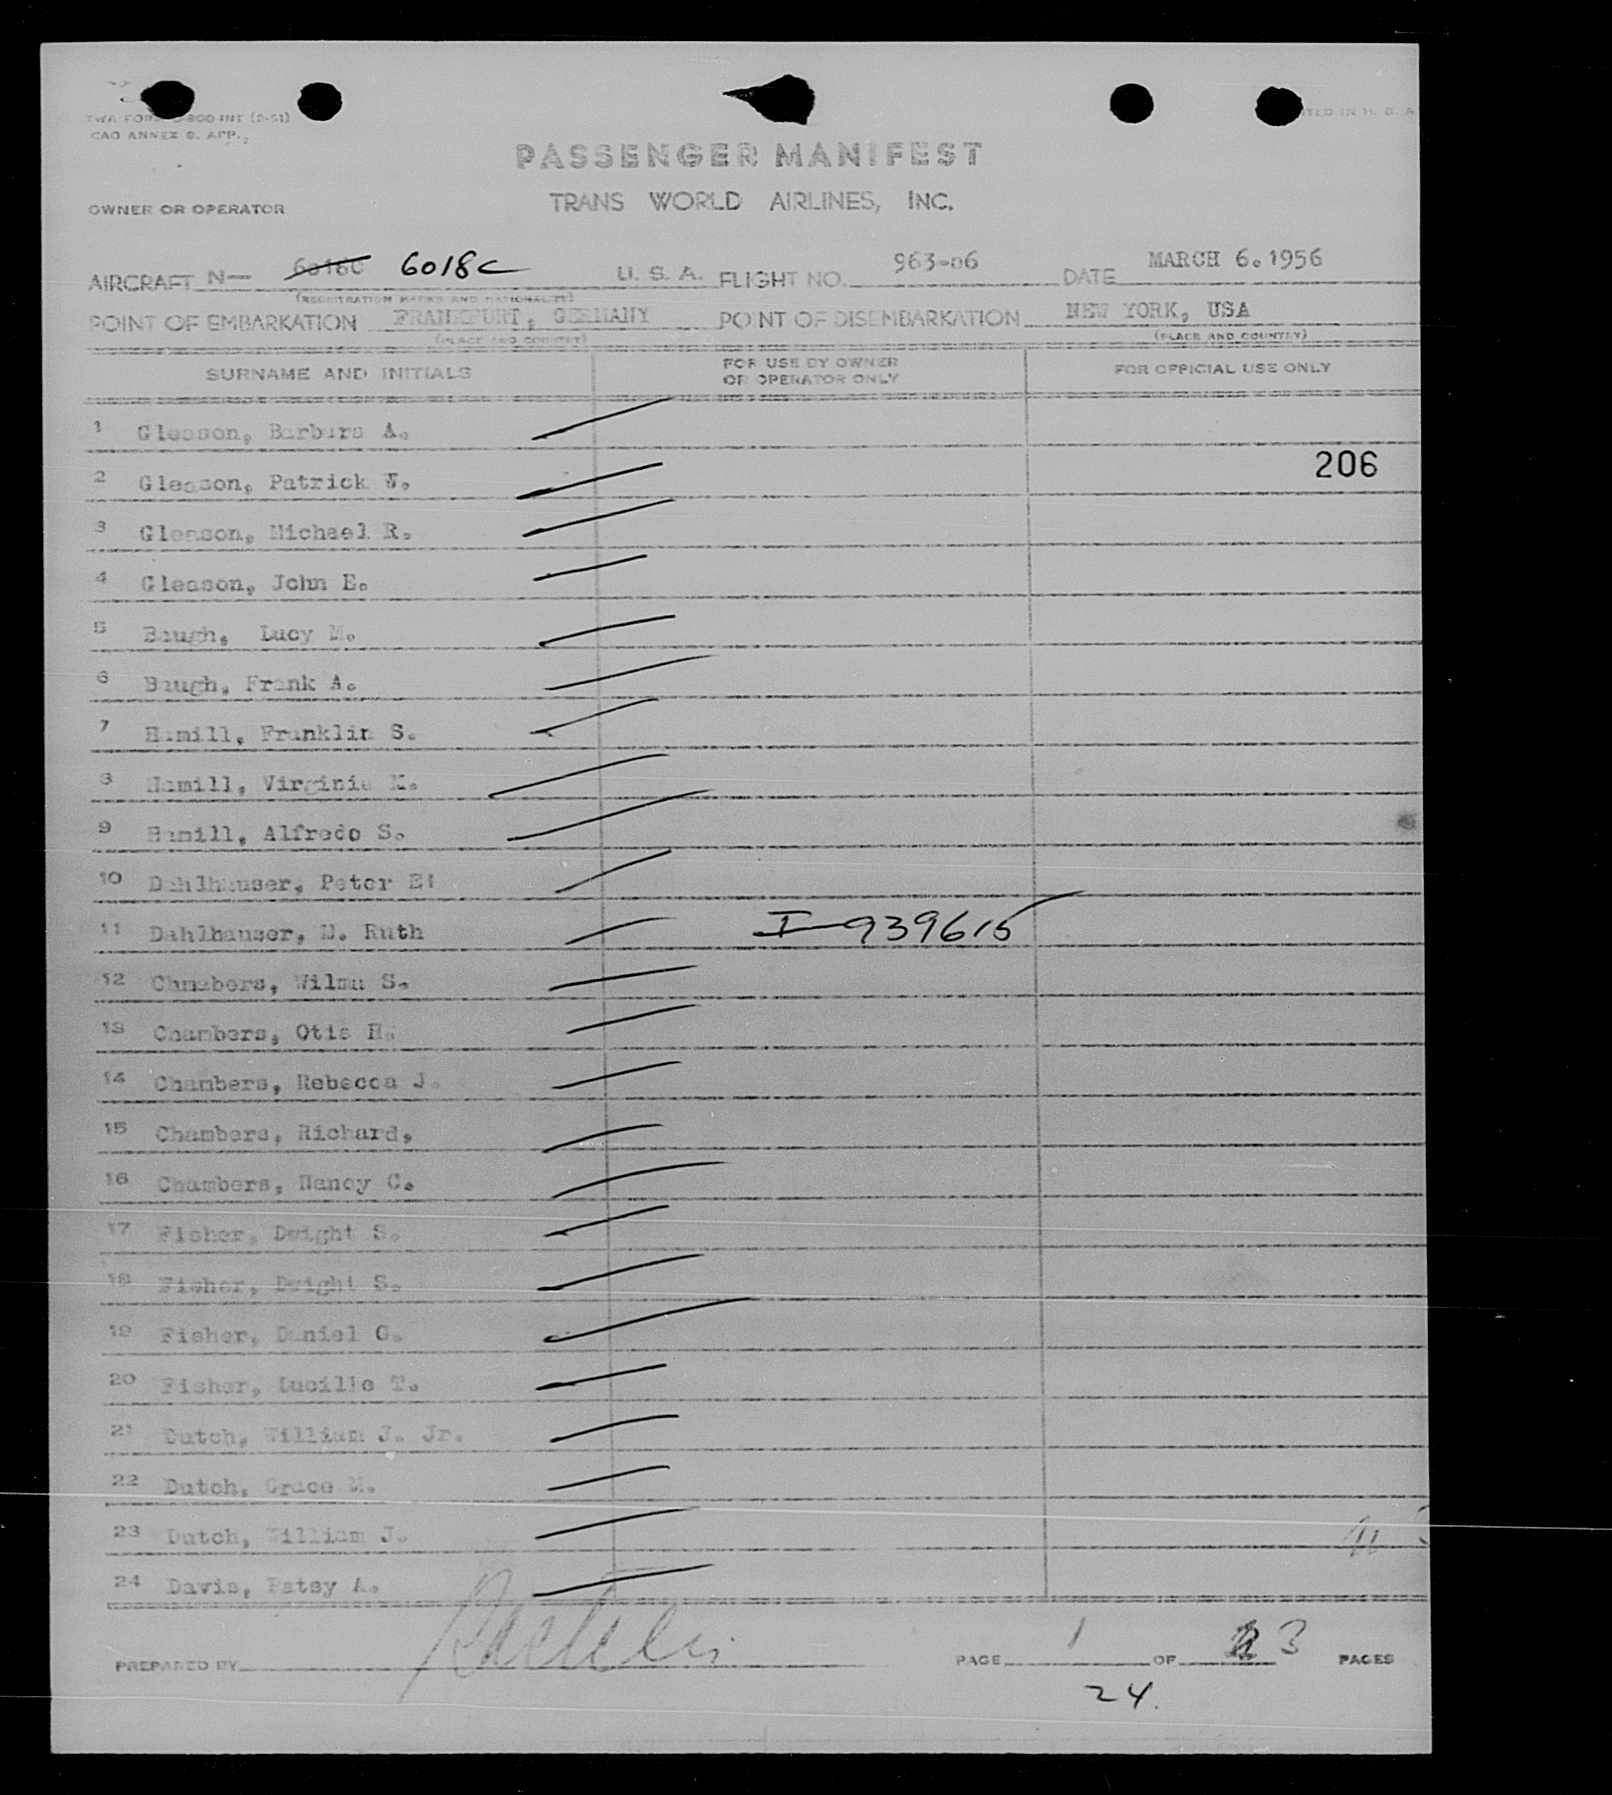 TWA FORM
CAO ANNEX 9. APP.
PASSENGER MANIFEST
OWNER OR OPERATOR TRANS WORLD AIRLINES, INC.
AIRCRAFT N— 6018C 6018C U. S. A. FLIGHT NO. 963-06 DATE MARCH 6. 1956
(REGISTRATION MARKS AND NATIONALITY)
POINT OF EMBARKATION FRANKFURT, GERMANY POINT OF DISEMBARKATION NEW YORK, USA
(PLACE AND COUNTRY) (PLACE AND COUNTRY)
SURNAME AND INITIALS FOR USE BY OWNER OR OPERATOR ONLY FOR OFFICIAL USE ONLY
1 Gleason, Barbara A.
2 Gleason, Patrick W. 206
3 Gleason, Michael R.
4 Gleason, John E.
5 Baugh, Lucy M.
6 Baugh, Frank A.
7 Hamill, Franklin S.
8 Hamill, Virginia K.
9 Hamill, Alfredo S.
10 Dahlhauser, Peter E!
11 Dahlhauser, M. Ruth I-939615
12 Chmabers, Wilma S.
13 Chambers, Otis H.
14 Chambers, Rebecca J.
15 Chambers, Richard,
16 Chambers, Nancy C.
17 Fisher, Dwight S.
18 Fisher, Dwight S.
19 Fisher, Daniel G.
20 Fisher, Lucille T.
21 Dutch, William J. Jr.
22 Dutch, Grace M.
23 Dutch, William J.
24 Davis, Patsy A.
PREPARED BY PAGE 1 OF 3 PAGES
24.